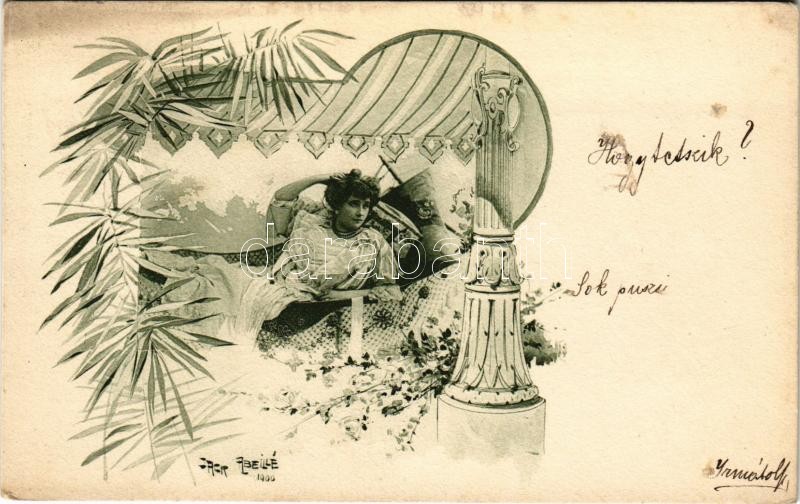 Hogy tetszik?
Sok puszi
Irmától
JACK ABEILLÉ
1900
darabanth